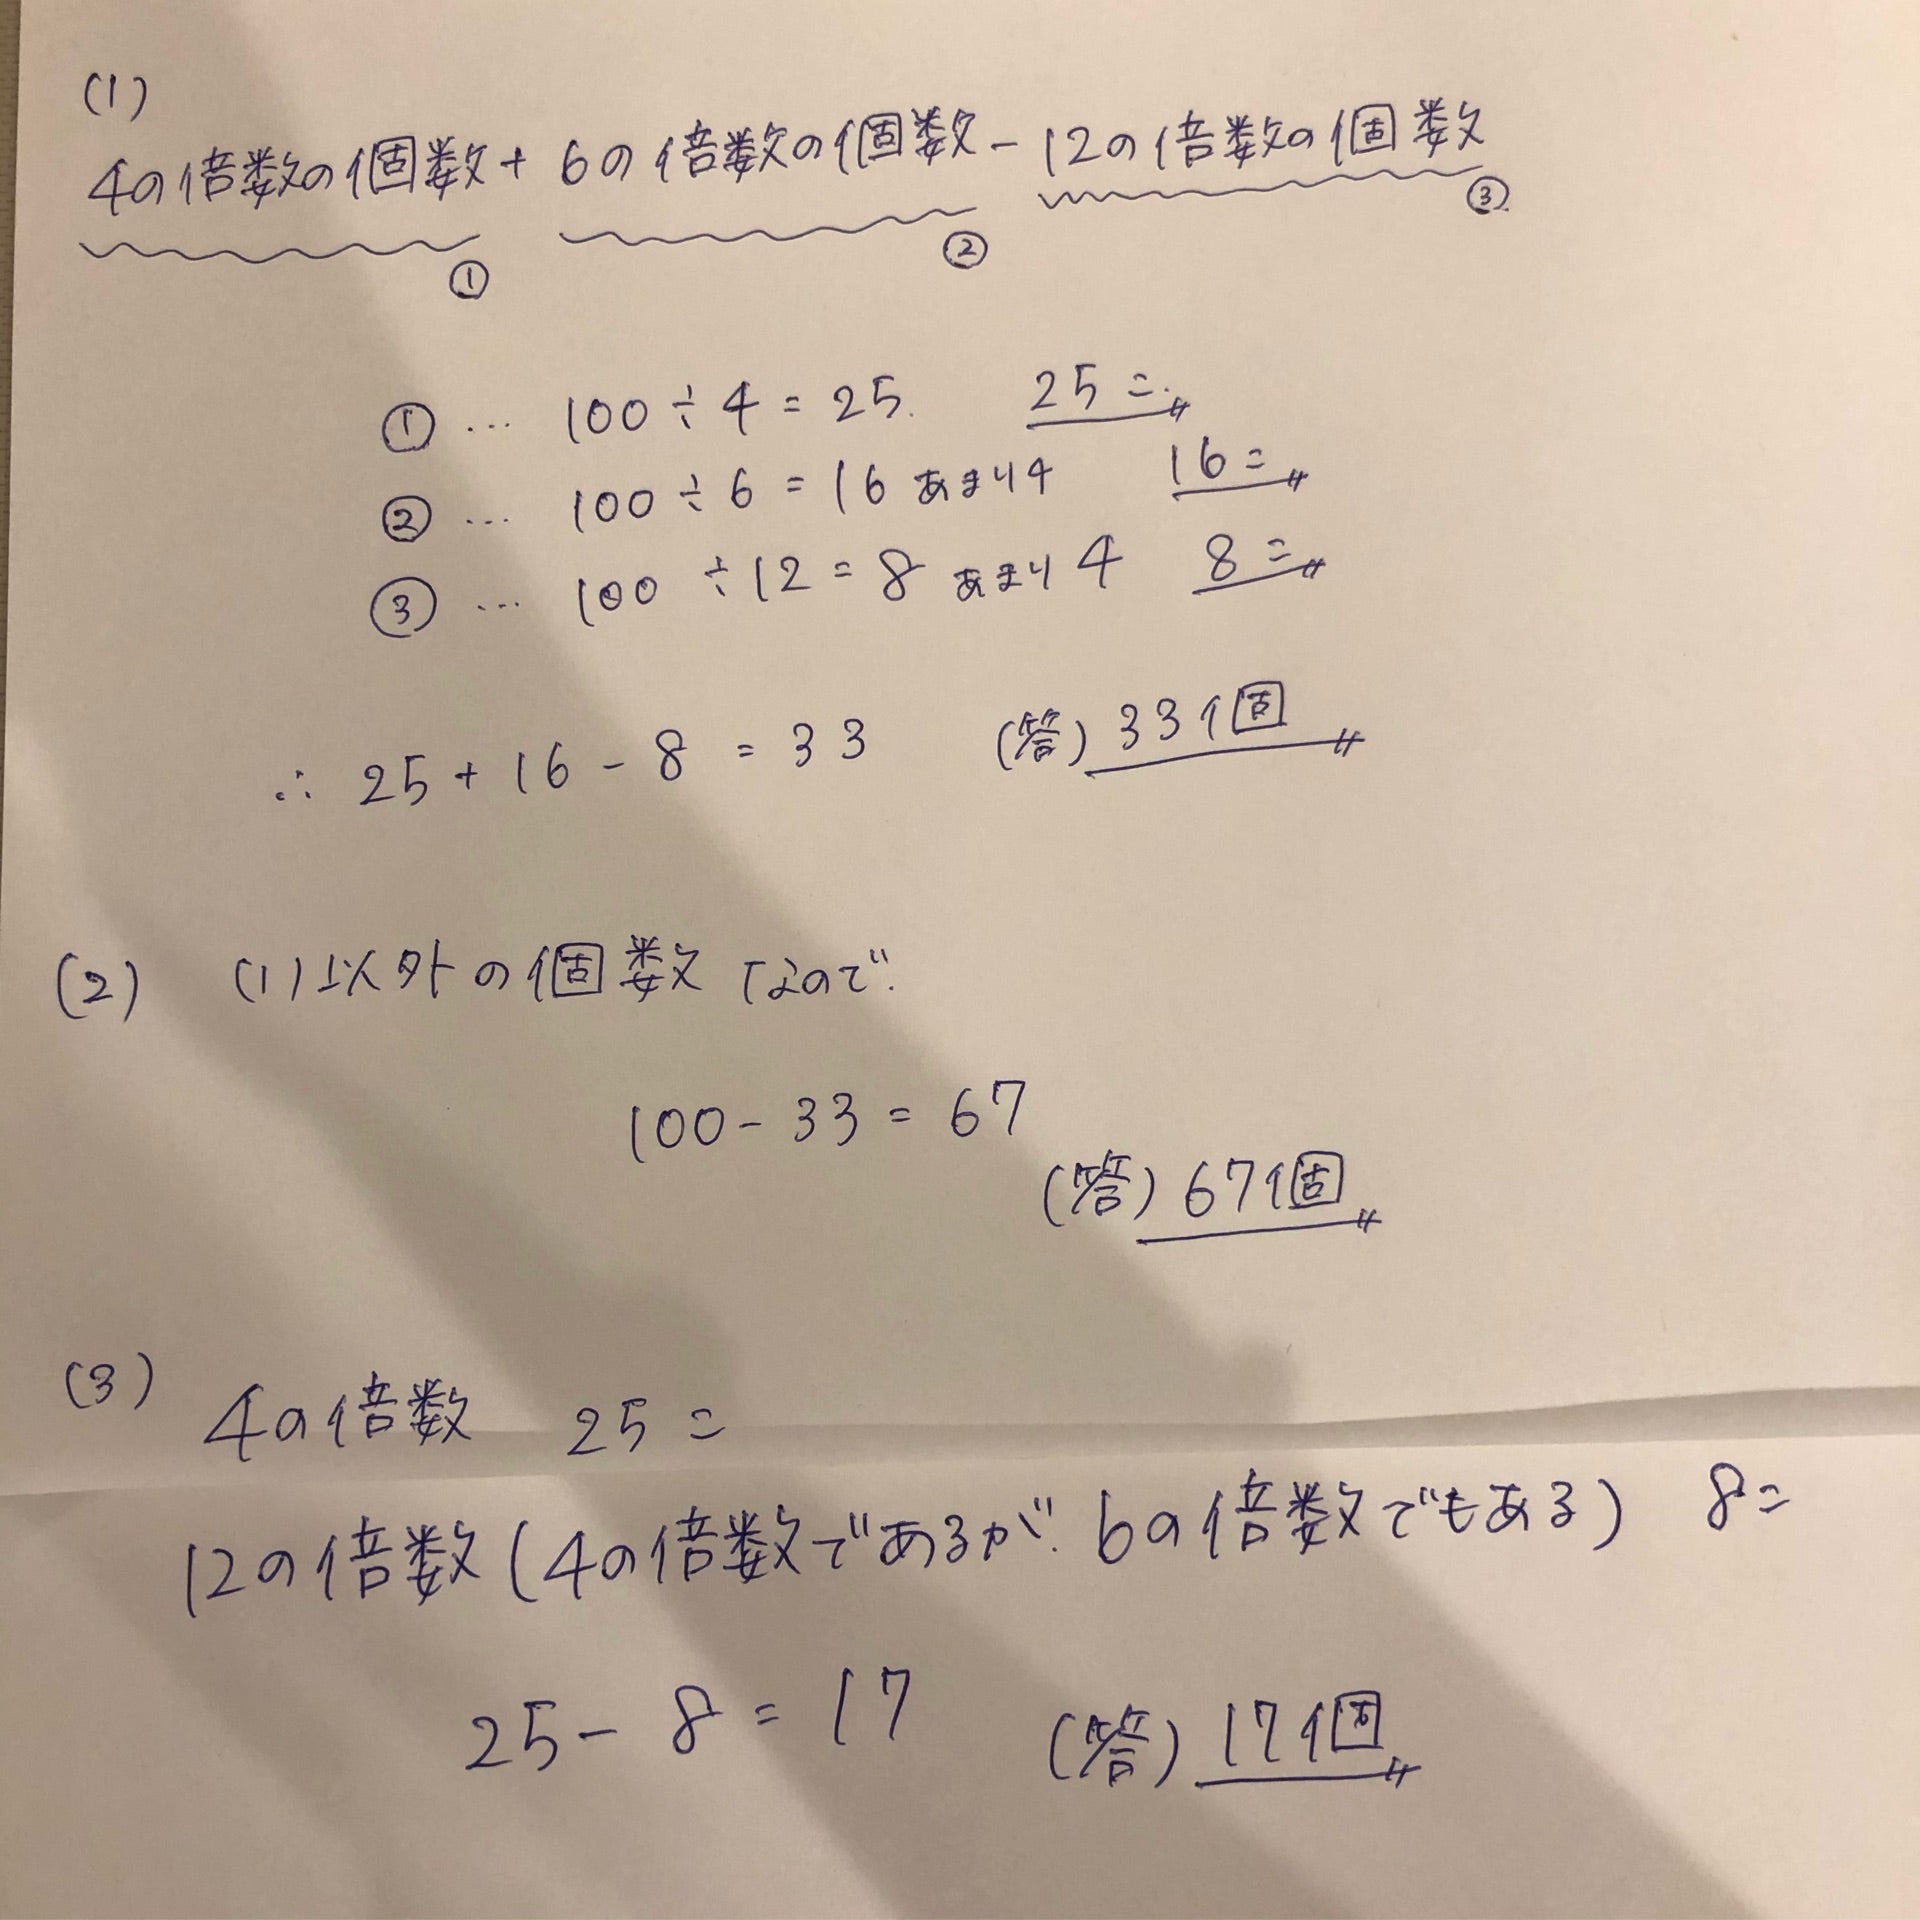 (1)
4の倍数の個数+6の倍数の個数-12の倍数の個数
① ② ③
①… 100÷4=25. 25コ
②… 100÷6=16あまり4 16コ
③… 100÷12=8あまり4 8コ
∴ 25+16-8=33 (答)33個
(2) (1)以外の個数なので.
100-33=67
(答)67個
(3)
4の倍数 25コ
12の倍数(4の倍数であるが.6の倍数でもある) 8コ
25-8=17 (答)17個